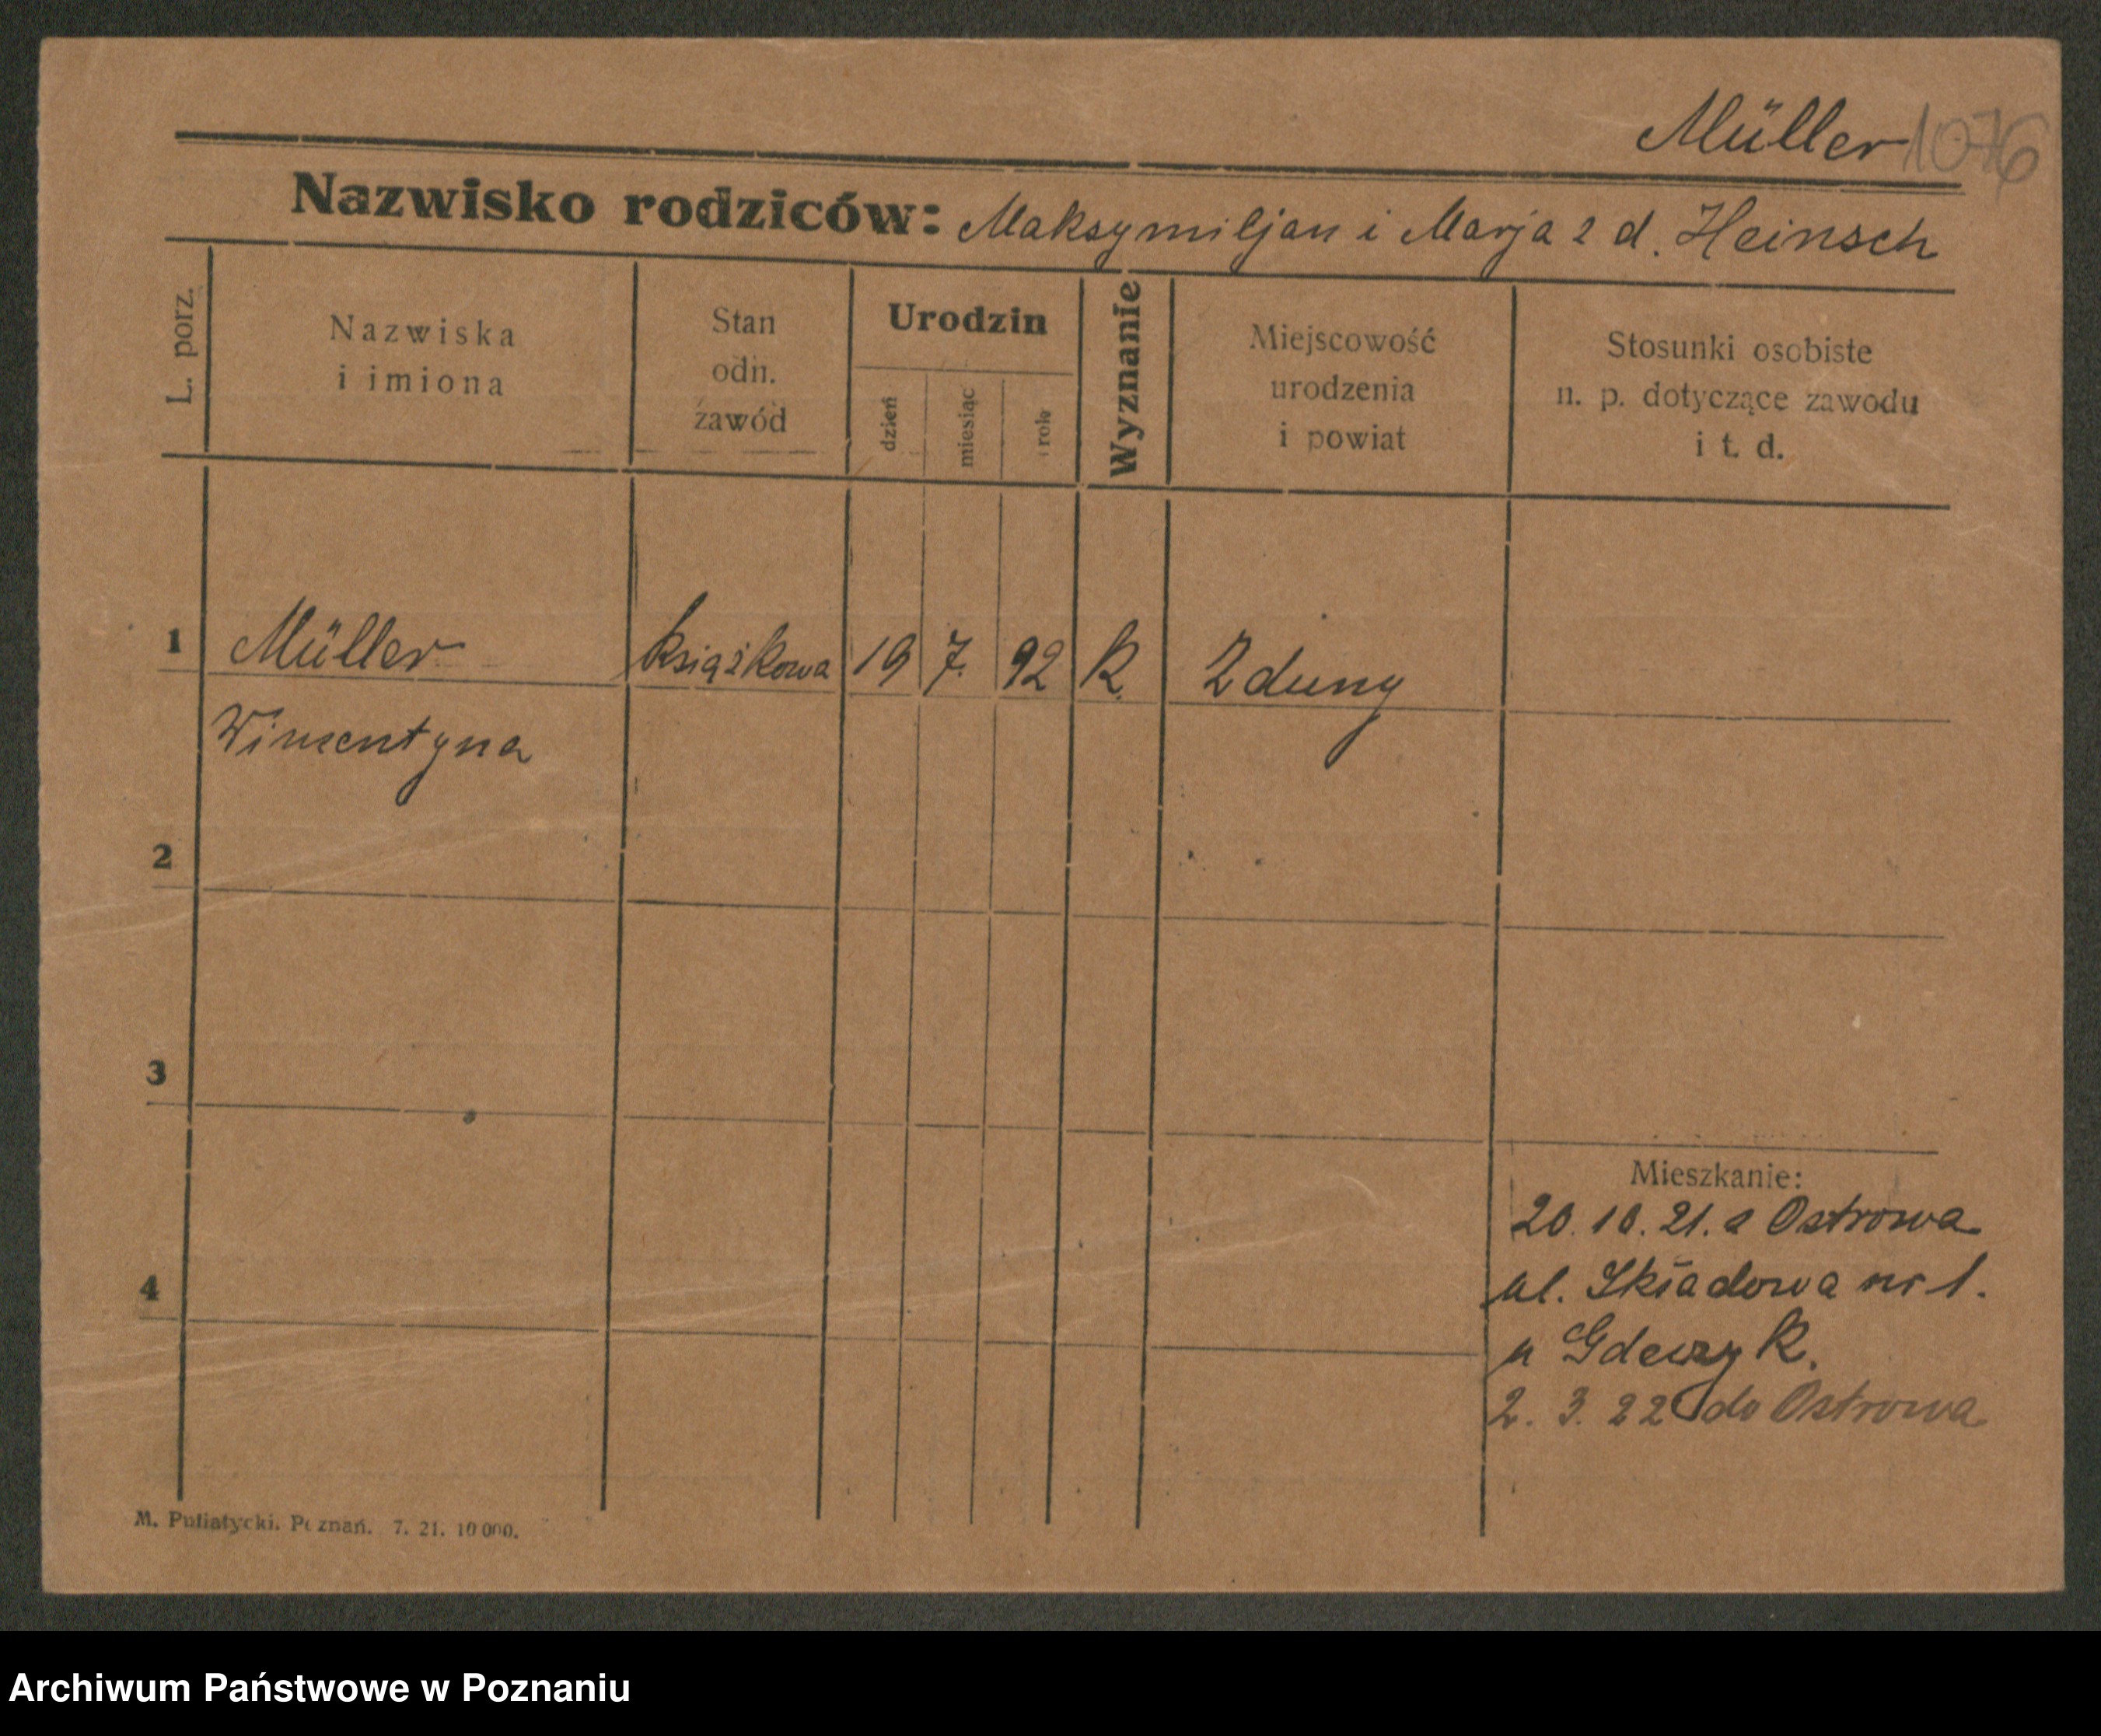 Müller 1076
Nazwisko rodziców: Maksymiljan i Marja z d. Heinsch
L. porz.
Nazwiska
i imiona
Stan
odn.
zawód
Urodzin
dzień
miesiąc
rok
Wyznanie
Miejscowość
urodzenia
i powiat
Stosunki osobiste
n. p. dotyczące zawodu
i t. d.
1 Müller książkowa 19 7. 92 k. Zduny
Wincentyna
2
3
4
Mieszkanie:
20. 10. 21. z Ostrowa
ul. Składowa nr 1.
u
2. 3. 22 do Ostrowa
M. Putiatycki. Poznań. 7. 21. 10 000.
Archiwum Państwowe w Poznaniu